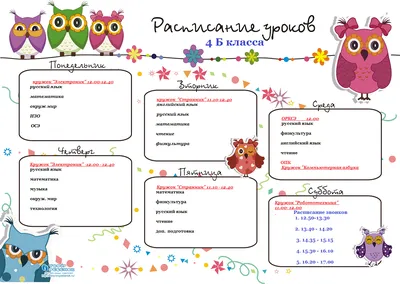 Расписание уроков
4 Б класса
Понедельник
кружок "Электроник" 12.00-12.40
русский язык
математика
окруж мир
ИЗО
ОСЗ
Вторник
кружок "Строитель" 11.10-11.40
английский язык
русский язык
математика
чтение
физкультура
Среда
ОРКСЭ 12.00
русский язык
физкультура
английский язык
чтение
ОПК
Кружок "Компьютерная азбука
Четверг
Кружок "Электроник" 12.00-12.40
русский язык
математика
музыка
окруж. мир
технология
Пятница
Кружок "Строитель" 11.10-11.40
математика
физкультура
русский язык
чтение
доп. подготовка
Суббота
Кружок "Робототехника"
12.00-13.00
Расписание звонков
1. 12.50-13.30
2. 13.40 - 14.20
3. 14.35 - 15.15
4. 15.30 - 16.10
5. 16.20 - 17.00